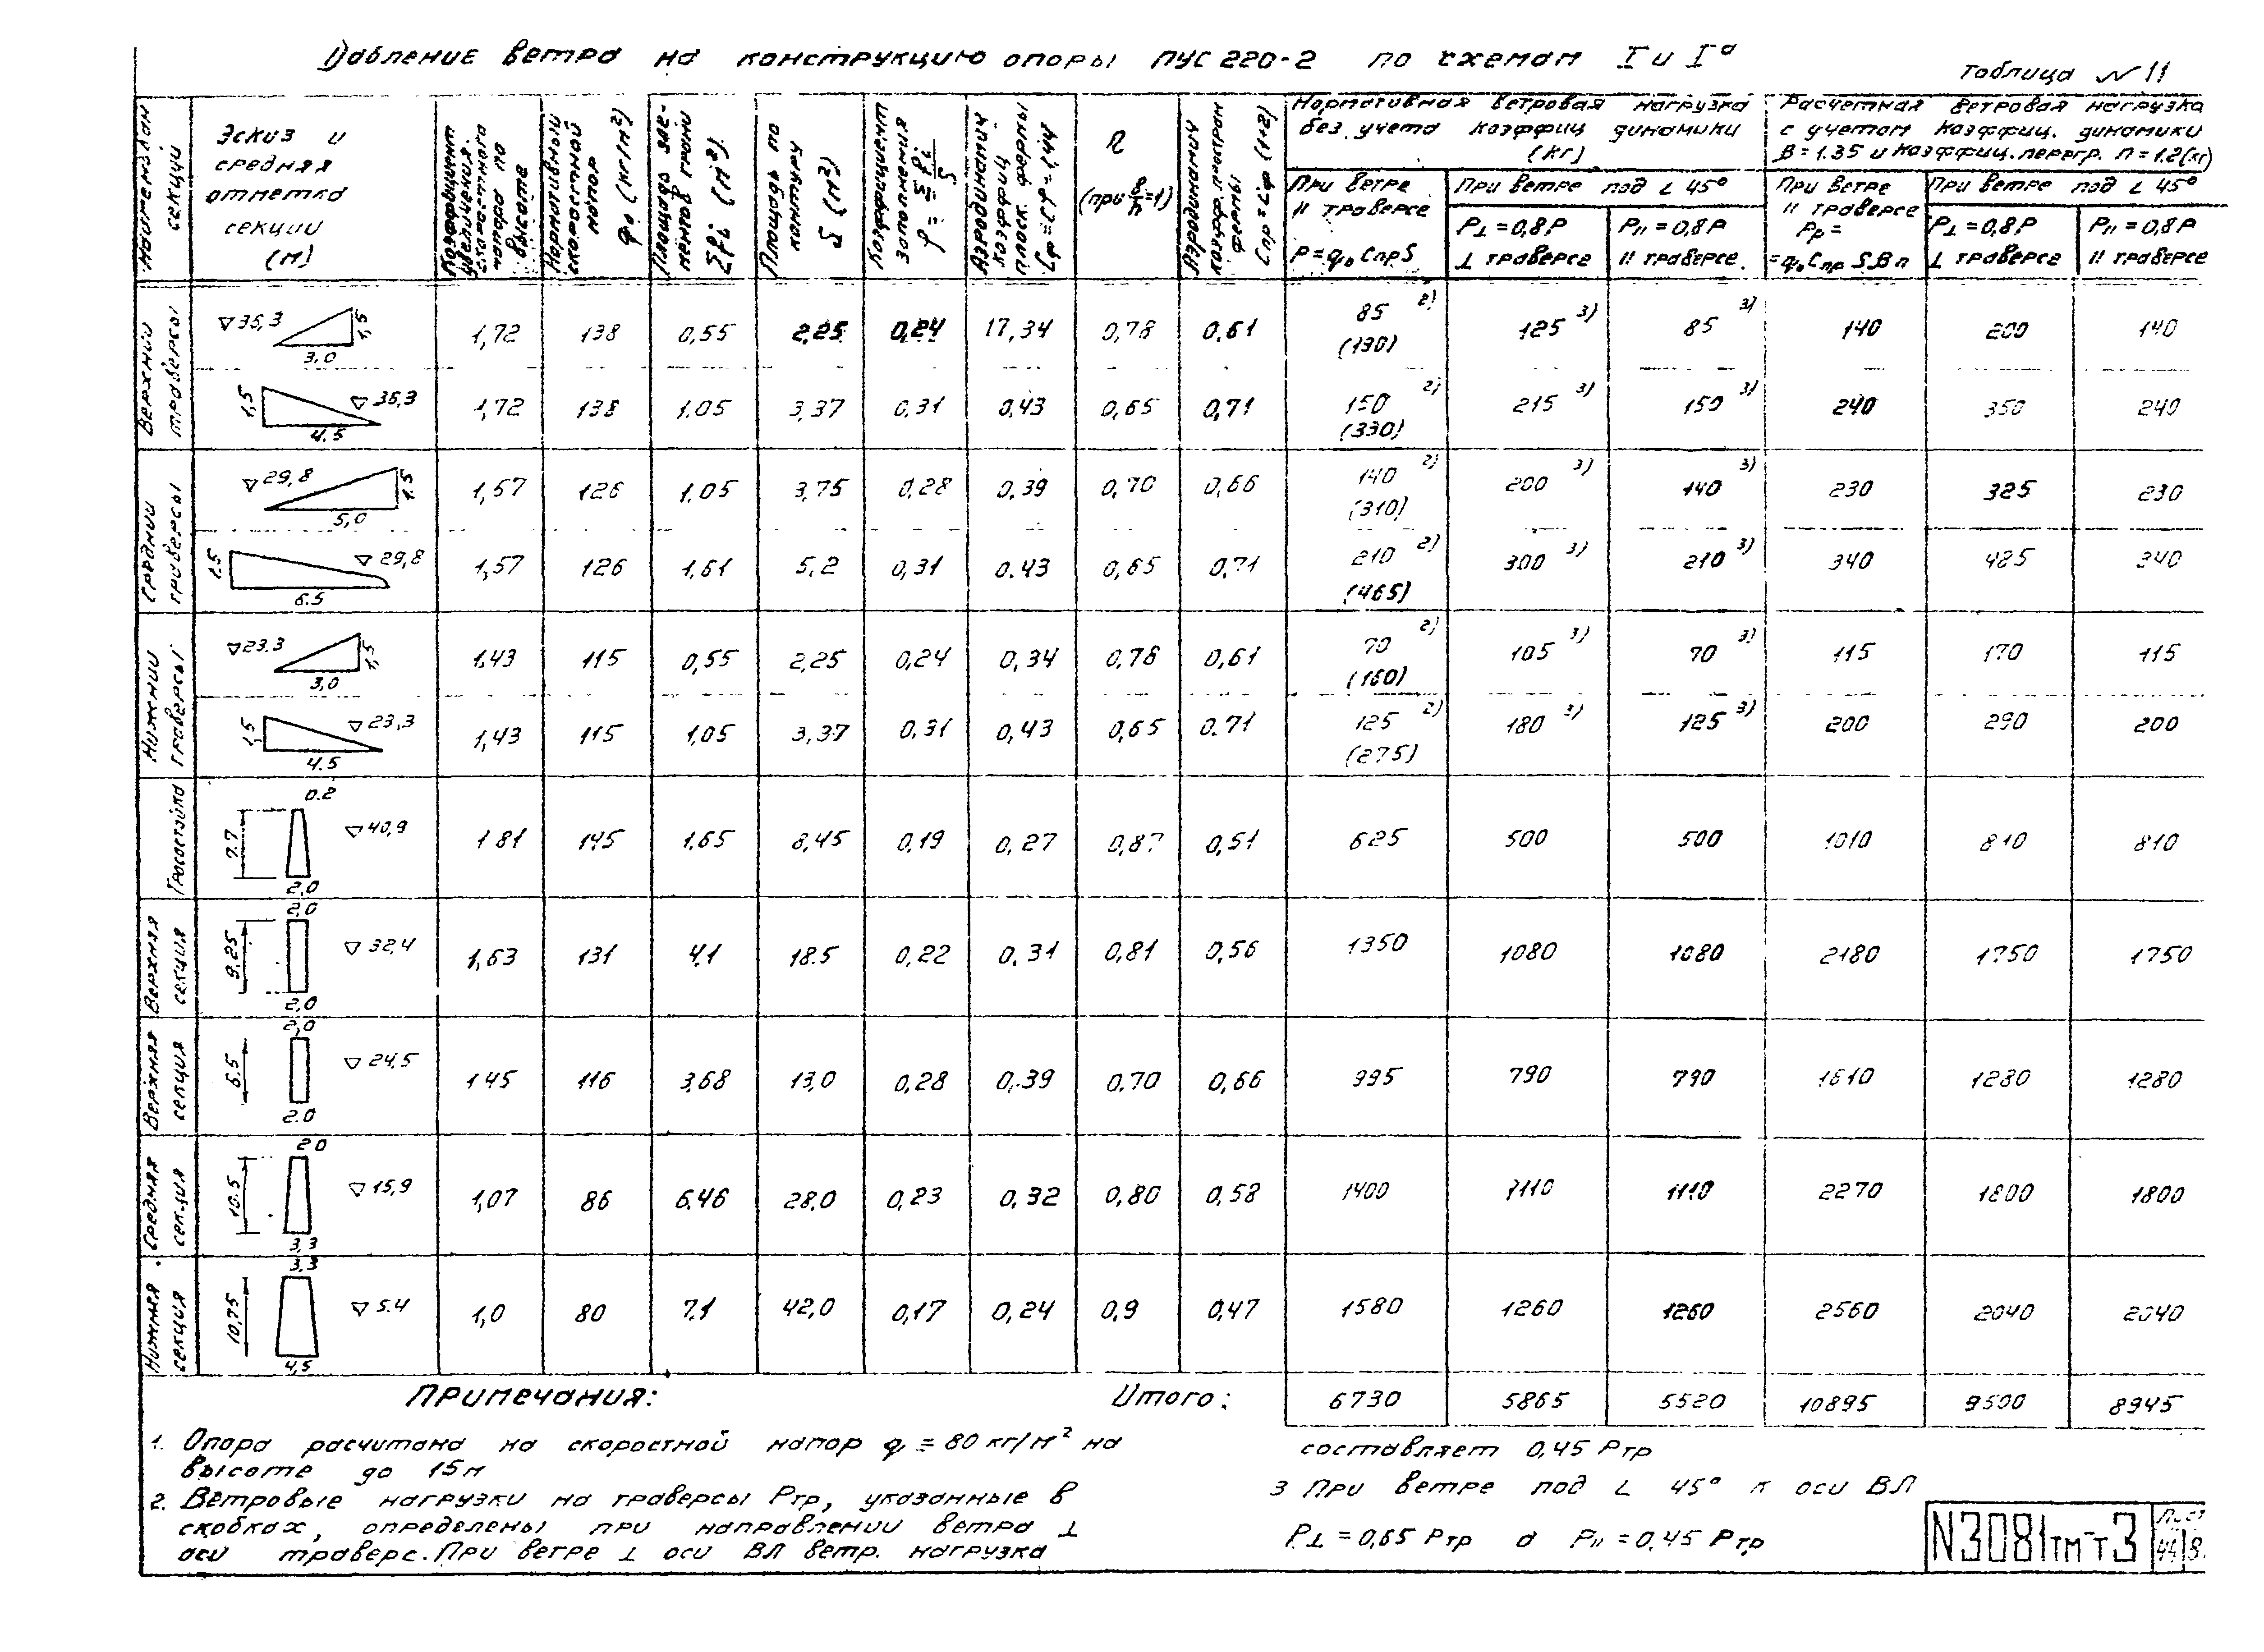 Давление ветра на конструкцию опоры ПУС 220-2 по схемам I и Iа
Таблица №11
Наименован секции
Эскиз и средняя отметка секции (м)
Коэффициент увеличения скоростного напора по высоте
Нормативный скоростной напор q₀ (кг/м²)
Площадь эле-
Площадь по контуру S (м²)
Коэффициент заполнения
(при b/h=1)
Нормативная ветровая нагрузка
без учета коэффиц динамики
(кг)
При ветре // траверсе P=q₀CпрS
При ветре под ∠ 45°
P⊥=0,8P ⊥ траверсе
P//=0,8P // траверсе
Расчетная ветровая нагрузка
с учетом коэффиц. динамики
B=1.35 и коэффиц. перегр. n=1.2(кг)
При ветре // траверсе Pр= =q₀Cпр S.B n
При ветре под ∠ 45°
P⊥=0,8P ⊥ траверсе
P//=0,8P // траверсе
Верхний траверсы
▽36,3 1,5 3.0 1,72 138 0,55 2,25 0,24 17,34 0,78 0,61 85 2) (190) 125 3) 85 3) 140 200 140
1,5 ▽36,3 4.5 1,72 138 1.05 3,37 0,31 0,43 0,65 0,71 150 2) (330) 215 3) 150 3) 240 350 240
Средний траверсы
▽29,8 1.5 5,0 1,57 126 1.05 3,75 0,28 0,39 0,70 0,66 140 2) (310) 200 3) 140 3) 230 325 230
1.5 ▽29,8 6.5 1,57 126 1,61 5,2 0,31 0.43 0,65 0,71 210 2) (465) 300 3) 210 3) 340 485 340
Нижний траверсы
▽23.3 1,5 3,0 1,43 115 0,55 2,25 0,24 0,34 0,78 0,61 70 2) (160) 105 3) 70 3) 115 170 115
1,5 ▽23,3 4.5 1,43 115 1,05 3,37 0,31 0,43 0,65 0.71 125 2) (275) 180 3) 125 3) 200 290 200
Тросостойка
0.2 7.7 ▽40,9 2,0 1 81 145 1,65 8,45 0,19 0,27 0,87 0,51 625 500 500 1010 810 810
Верхняя секция
2,0 9.25 ▽32,4 2,0 1,63 131 4.1 18.5 0,22 0,31 0,81 0,56 1350 1080 1080 2180 1750 1750
Верхняя секция
2,0 6.5 ▽24,5 2.0 1 45 116 3,68 13,0 0,28 0,39 0,70 0,66 995 790 790 1610 1280 1280
Средняя секция
2 0 10.5 ▽15,9 3,3 1,07 86 6.46 28.0 0,23 0,32 0,80 0,58 1400 1110 1110 2270 1800 1800
Нижняя секция
3,3 10,75 ▽5.4 4,5 1,0 80 7.1 42,0 0,17 0,24 0.9 0,47 1580 1260 1260 2560 2040 2040
Итого: 6730 5865 5520 10895 9500 8945
Примечания:
1. Опора расчитана на скоростной напор q = 80 кг/м² на
высоте до 15м
2. Ветровые нагрузки на траверсы Pтр, указанные в
скобках, определены при направлении ветра ⊥
оси траверс. При ветре ⊥ оси ВЛ ветр. нагрузка
составляет 0,45 Pтр
3 При ветре под ∠ 45° к оси ВЛ
P⊥ = 0,65 Pтр а P// = 0,45 Pтр
N3081тм-т3
Лист